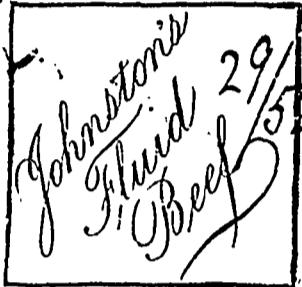 Johnston's
Fluid
Beef
29/5